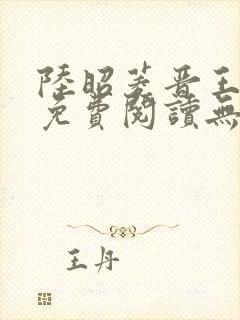 陸昭菱晋王
免費閱讀無
王丹